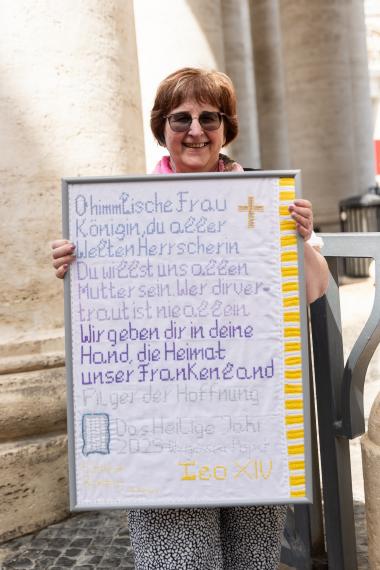 O himmlische Frau
Königin, du aller
Welten Herrscherin
Du willst uns allen
Mutter sein. Wer dir ver-
traut ist nie allein.
Wir geben dir in deine
Hand, die Heimat
unser Frankenland
Pilger der Hoffnung
Das Heilige Jahr
2025
Leo XIV